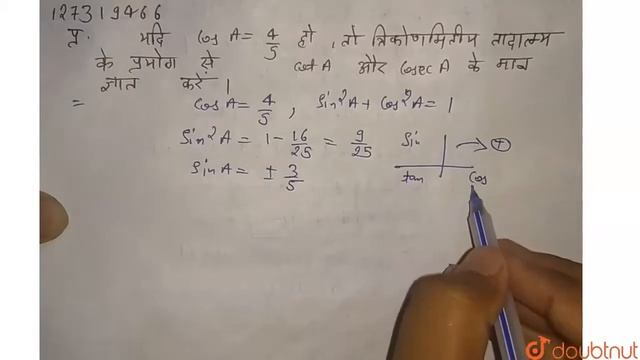 127319466
प्र. यदि cos A = 4/5 हो, तो त्रिकोणमितीय तादात्म्य
के प्रयोग से cot A और cosec A के मान
ज्ञात करें।
= cos A = 4/5, sin²A + cos²A = 1
sin²A = 1 - 16/25 = 9/25
sin A = ± 3/5
sin → +
tan cos
doubtnut